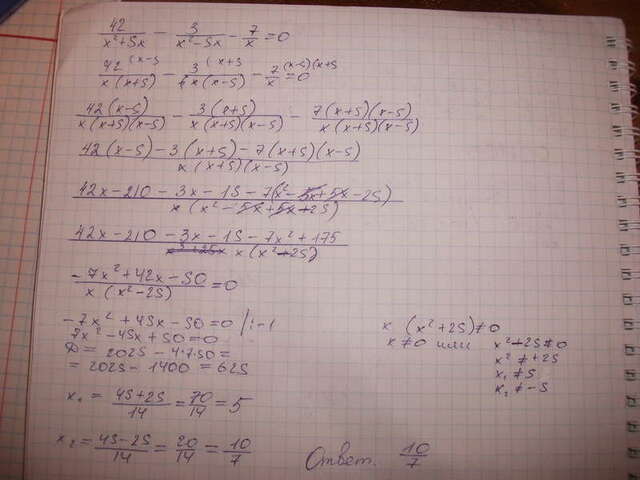 42/(x²+5x) − 3/(x²−5x) − 7/x = 0
42^(x−5/x(x+5) − 3^(x+5/x(x−5) − 7^(x−5)(x+5/x = 0
42(x−5)/x(x+5)(x−5) − 3(x+5)/x(x+5)(x−5) − 7(x+5)(x−5)/x(x+5)(x−5)
42(x−5)−3(x+5)−7(x+5)(x−5)/x(x+5)(x−5)
42x−210−3x−15−7(x²−5x+5x−25)/x(x²−5x+5x+25)
42x−210−3x−15−7x²+175/x(x²−25)
−7x²+42x−50/x(x²−25) = 0
−7x²+45x−50=0 /:−1
7x²−45x+50=0
D = 2025−4·7·50=
= 2025−1400=625
x₁ = (45+25)/14 = 70/14 = 5
x₂ = (45−25)/14 = 20/14 = 10/7
x (x²+25)≠0
x≠0 или x²−25≠0
x²≠+25
x₁≠5
x₂≠−5
Ответ. 10/7